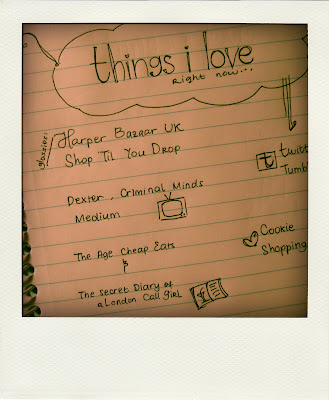 things i love
right now...
Glossies:
Harper Bazaar UK
Shop Til You Drop
t
Dexter, Criminal Minds
Medium
Cookie
Shopping
The Age Cheap Eats
&
The Secret Diary of
a London Call Girl